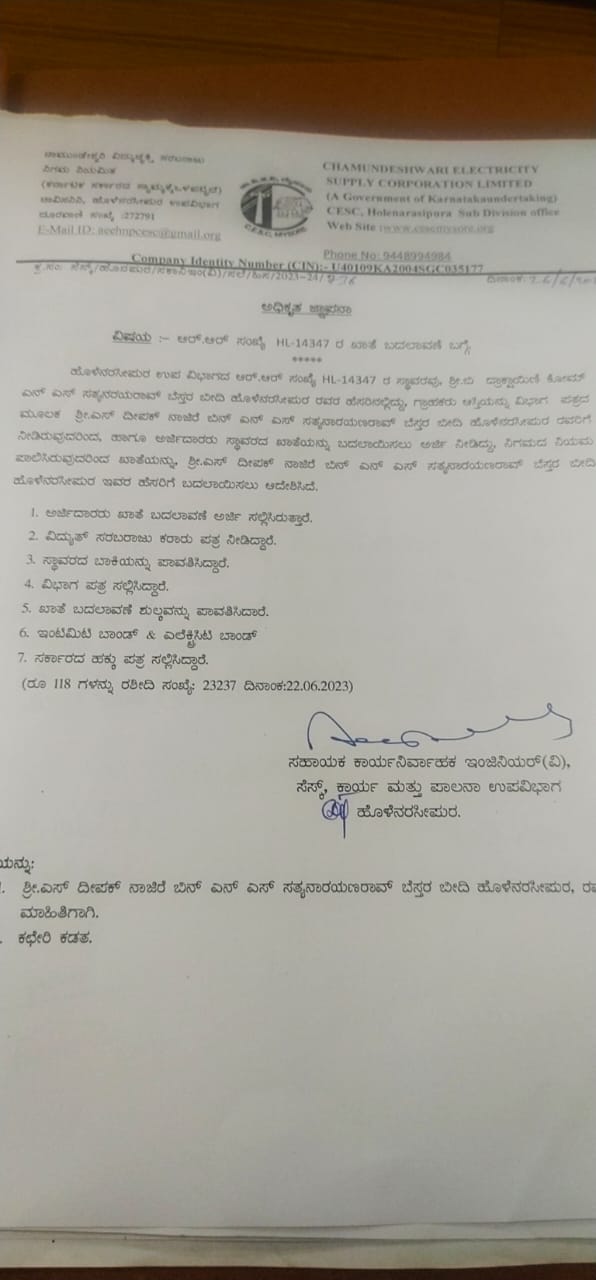 ಚಾಮುಂಡೇಶ್ವರಿ ವಿದ್ಯುಚ್ಛಕ್ತಿ ಸರಬರಾಜು
ನಿಗಮ ನಿಯಮಿತ
(ಕರ್ನಾಟಕ ಸರ್ಕಾರದ ಸ್ವಾಮ್ಯಕ್ಕೊಳಪಟ್ಟಿದೆ)
ಚಾವಿಸನಿನಿ, ಹೊಳೆನರಸೀಪುರ ಉಪವಿಭಾಗ
ದೂರವಾಣಿ ಸಂಖ್ಯೆ :272791
E-Mail ID: aeehnpcesc@gmail.org
C.E.S.C, MYSORE
CHAMUNDESHWARI ELECTRICITY
SUPPLY CORPORATION LIMITED
(A Government of Karnatakaundertaking)
CESC, Holenarasipura Sub Division office
Web Site :www.cescmysore.org
Phone No: 9448994984
Company Identity Number (CIN):- U40109KA2004SGC035177
ಕ್ರ.ಸಂ: ಸೆಸ್ಕ್/ಹೊನಪುರ/ಸಕಾನಿಇಂ(ವಿ)/ಸಲೆ/ಹಿಸ/2023-24/
ದಿನಾಂಕ:
ಅಧಿಕೃತ ಜ್ಞಾಪನಾ
ವಿಷಯ :- ಆರ್.ಆರ್ ಸಂಖ್ಯೆ HL-14347 ರ ಖಾತೆ ಬದಲಾವಣೆ ಬಗ್ಗೆ.
*****
ಹೊಳೆನರಸೀಪುರ ಉಪ ವಿಭಾಗದ ಆರ್.ಆರ್ ಸಂಖ್ಯೆ HL-14347 ರ ಸ್ಥಾವರವು, ಶ್ರೀ.ಬಿ ದ್ರಾಕ್ಷಾಯಿಣಿ ಕೋಮ್
ಎನ್ ಎಸ್ ಸತ್ಯನಾರಯರಾವ್ ಬೆಸ್ತರ ಬೀದಿ ಹೊಳೆನರಸೀಪುರ ರವರ ಹೆಸರಿನಲ್ಲಿದ್ದು, ಗ್ರಾಹಕರು ಆಸ್ತಿಯನ್ನು ವಿಭಾಗ ಪತ್ರದ
ಮೂಲಕ ಶ್ರೀ.ಎಸ್ ದೀಪಕ್ ನಾಜಿರೆ ಬಿನ್ ಎನ್ ಎಸ್ ಸತ್ಯನಾರಾಯಣರಾವ್ ಬೆಸ್ತರ ಬೀದಿ ಹೊಳೆನರಸೀಪುರ ರವರಿಗೆ
ನೀಡಿರುವುದರಿಂದ, ಹಾಗೂ ಅರ್ಜಿದಾರರು ಸ್ಥಾವರದ ಖಾತೆಯನ್ನು ಬದಲಾಯಿಸಲು ಅರ್ಜಿ ನೀಡಿದ್ದು, ನಿಗಮದ ನಿಯಮ
ಪಾಲಿಸಿರುವುದರಿಂದ ಖಾತೆಯನ್ನು, ಶ್ರೀ.ಎಸ್ ದೀಪಕ್ ನಾಜಿರೆ ಬಿನ್ ಎನ್ ಎಸ್ ಸತ್ಯನಾರಯಣರಾವ್ ಬೆಸ್ತರ ಬೀದಿ
ಹೊಳೆನರಸೀಪುರ ಇವರ ಹೆಸರಿಗೆ ಬದಲಾಯಿಸಲು ಆದೇಶಿಸಿದೆ.
1. ಅರ್ಜಿದಾರರು ಖಾತೆ ಬದಲಾವಣೆ ಅರ್ಜಿ ಸಲ್ಲಿಸಿರುತ್ತಾರೆ.
2. ವಿದ್ಯುತ್ ಸರಬರಾಜು ಕರಾರು ಪತ್ರ ನೀಡಿದ್ದಾರೆ.
3. ಸ್ಥಾವರದ ಬಾಕಿಯನ್ನು ಪಾವತಿಸಿದ್ದಾರೆ.
4. ವಿಭಾಗ ಪತ್ರ ಸಲ್ಲಿಸಿದ್ದಾರೆ.
5. ಖಾತೆ ಬದಲಾವಣೆ ಶುಲ್ಕವನ್ನು ಪಾವತಿಸಿದಾರೆ.
6. ಇಂಟಿಮಿಟಿ ಬಾಂಡ್ & ಎಲೆಕ್ಟ್ರಿಸಿಟಿ ಬಾಂಡ್
7. ಸರ್ಕಾರದ ಹಕ್ಕು ಪತ್ರ ಸಲ್ಲಿಸಿದ್ದಾರೆ.
(ರೂ 118 ಗಳನ್ನು ರಶೀದಿ ಸಂಖ್ಯೆ: 23237 ದಿನಾಂಕ:22.06.2023)
ಸಹಾಯಕ ಕಾರ್ಯನಿರ್ವಾಹಕ ಇಂಜಿನಿಯರ್(ವಿ),
ಸೆಸ್ಕ್, ಕಾರ್ಯ ಮತ್ತು ಪಾಲನಾ ಉಪವಿಭಾಗ
ಹೊಳೆನರಸೀಪುರ.
ಯನ್ನು:
ಶ್ರೀ.ಎಸ್ ದೀಪಕ್ ನಾಜಿರೆ ಬಿನ್ ಎನ್ ಎಸ್ ಸತ್ಯನಾರಯಣರಾವ್ ಬೆಸ್ತರ ಬೀದಿ ಹೊಳೆನರಸೀಪುರ, ರವ
ಮಾಹಿತಿಗಾಗಿ.
ಕಛೇರಿ ಕಡತ.